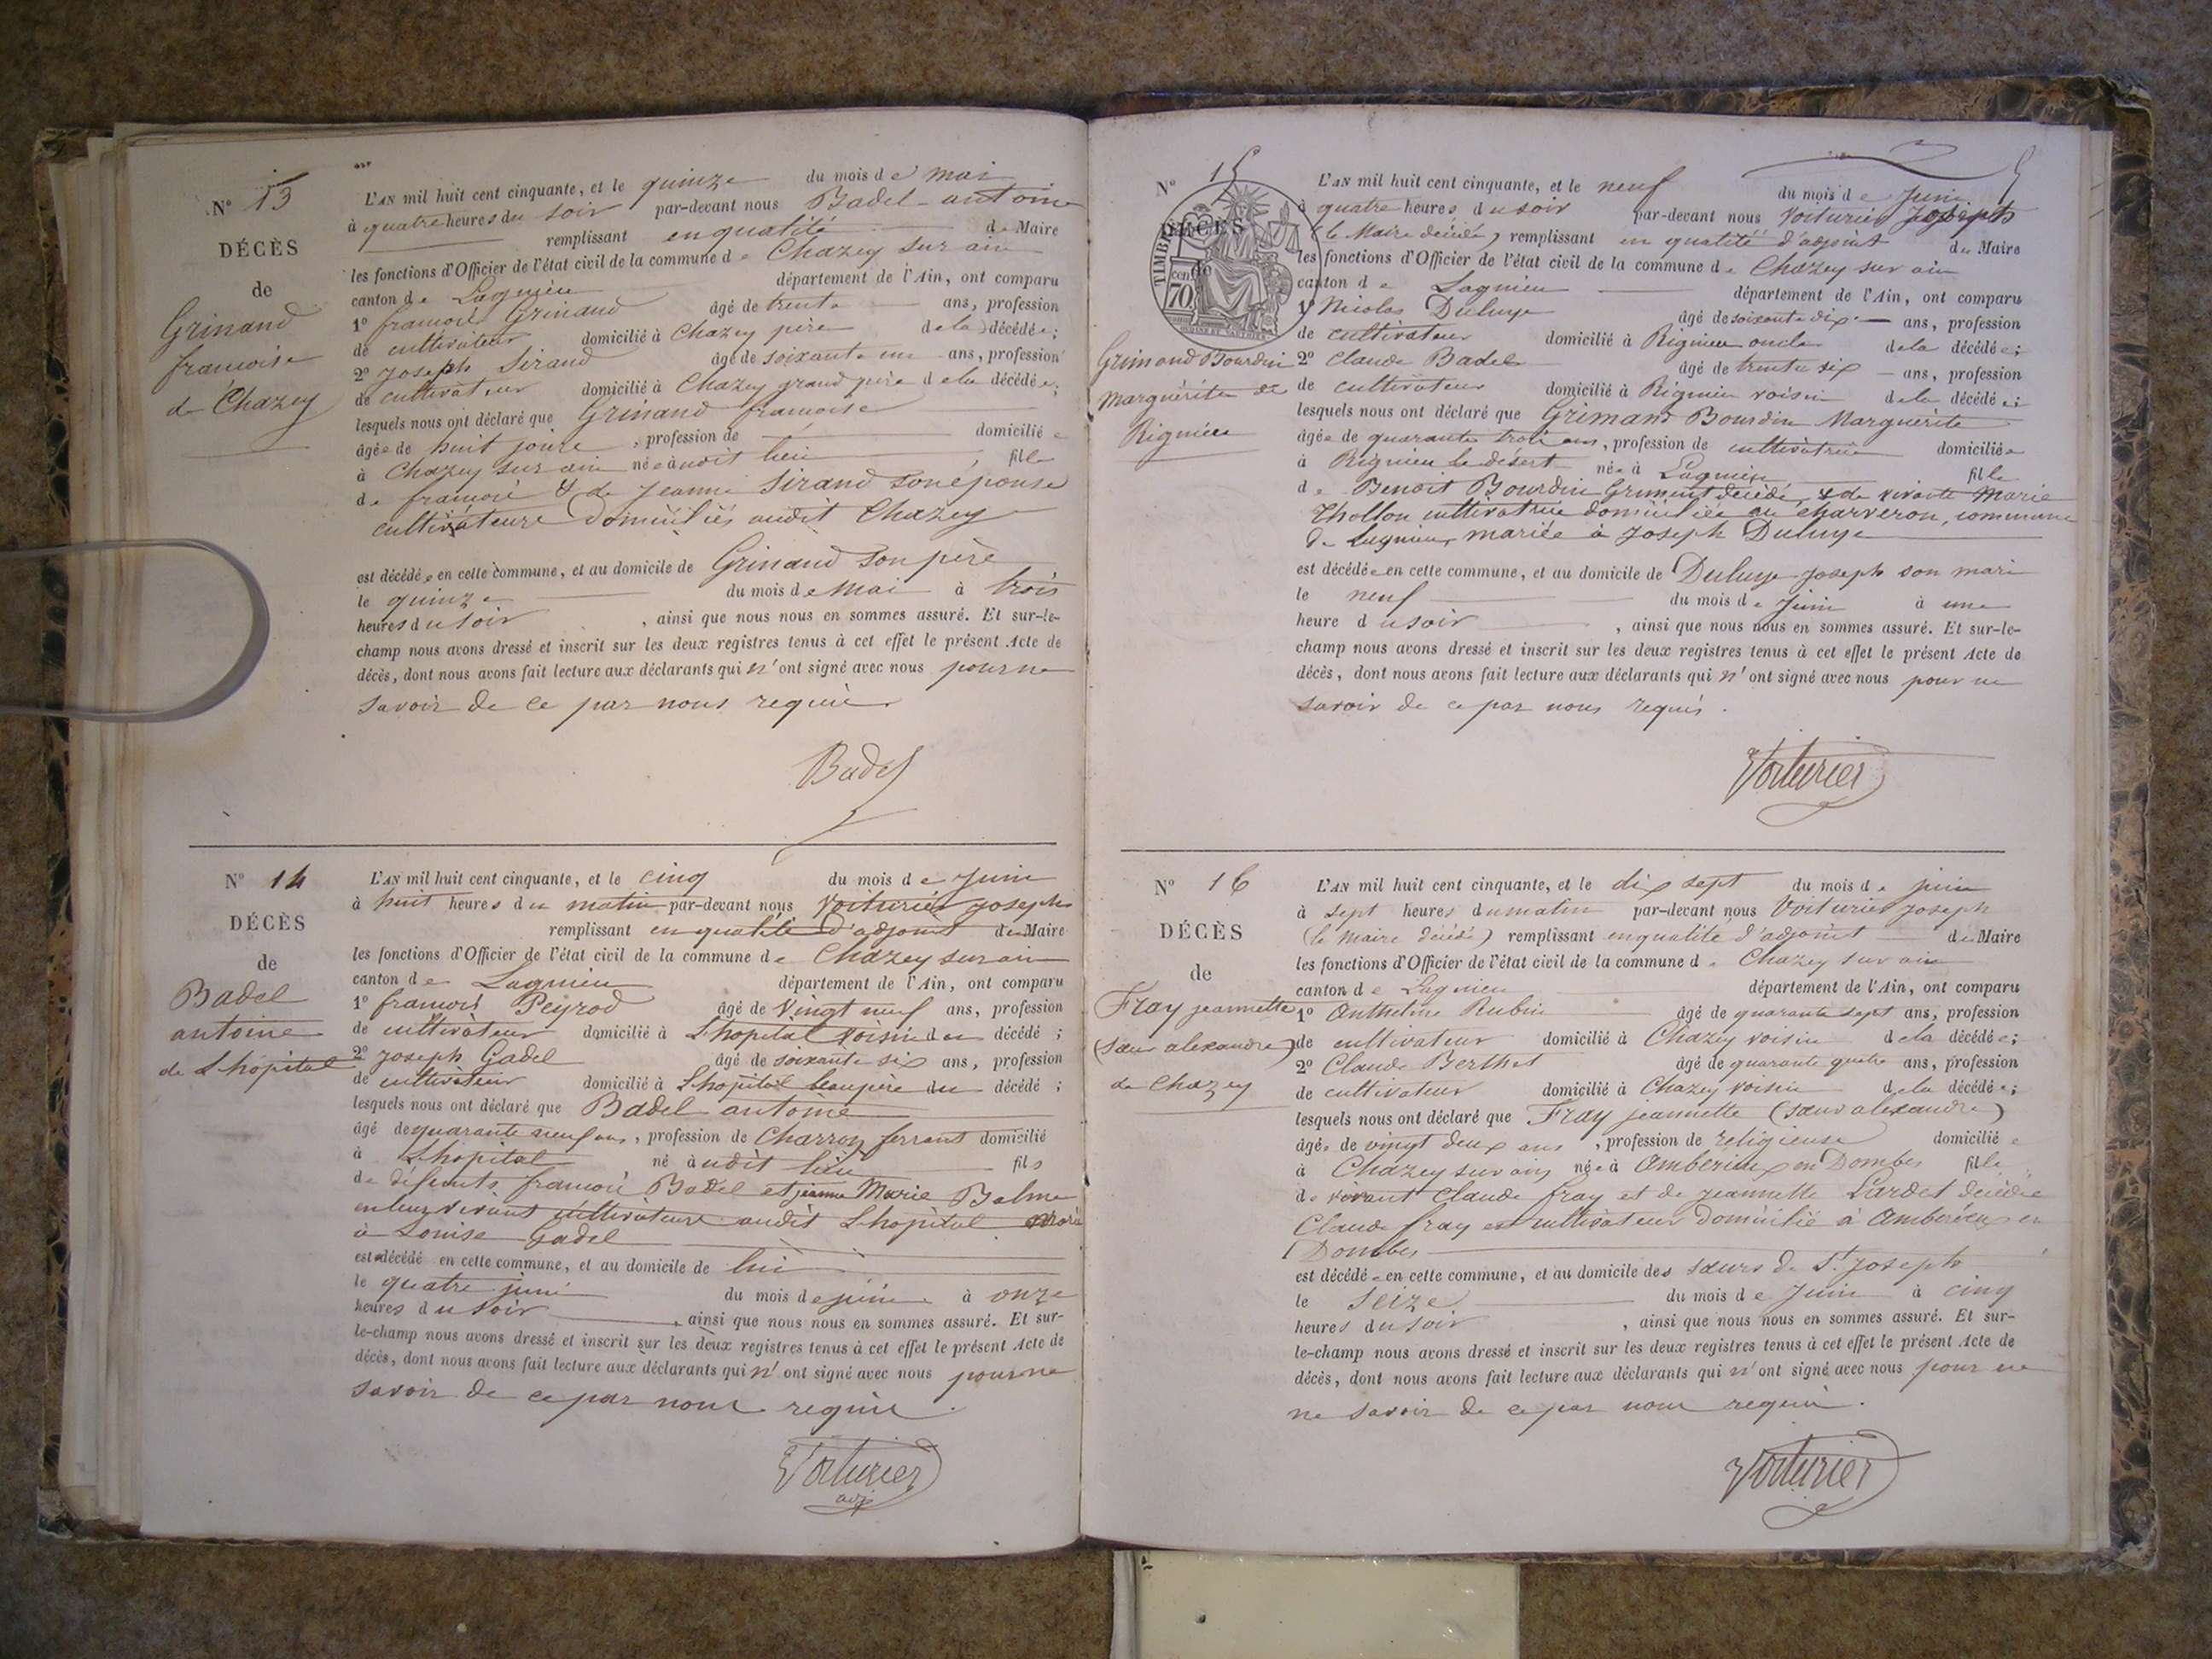 N° 13
DÉCÈS
de
Grinand
francoise
de Chazey
L'AN mil huit cent cinquante, et le quinze du mois de mai
à quatre heures du soir par-devant nous Badel antoine
remplissant en qualité de Maire
les fonctions d'Officier de l'état civil de la commune de Chazey sur ain
canton de Lagnieu département de l'Ain, ont comparu
1° francois Grinand âgé de trente ans, profession
de cultivateur domicilié à Chazey père de la décédée;
2° Joseph Sirand âgé de soixante un ans, profession
de cultivateur domicilié à Chazey grand père de la décédée;
lesquels nous ont déclaré que Grinand francoise
âgée de huit jours, profession de domiciliée
à Chazey sur ain née audit lieu fille
de francois & de Jeanne Sirand son épouse
cultivateurs domiciliés audit Chazey
est décédée en cette commune, et au domicile de Grinand son père
le quinze du mois de mai à trois
heures du soir, ainsi que nous nous en sommes assuré. Et sur-le-
champ nous avons dressé et inscrit sur les deux registres tenus à cet effet le présent Acte de
décès, dont nous avons fait lecture aux déclarants qui n'ont signé avec nous pour ne
savoir de ce par nous requis
Badel
N° 14
DÉCÈS
de
Badel
antoine
de Lhopital
L'AN mil huit cent cinquante, et le cinq du mois de Juin
à huit heures du matin par-devant nous Voiturier joseph
remplissant en qualité d'adjoint du Maire
les fonctions d'Officier de l'état civil de la commune de Chazey sur ain
canton de Lagnieu département de l'Ain, ont comparu
1° francois Peyrod âgé de vingt neuf ans, profession
de cultivateur domicilié à Lhopital voisin du décédé;
2° Joseph Gadel âgé de soixante six ans, profession
de cultivateur domicilié à Lhopital beaupère du décédé;
lesquels nous ont déclaré que Badel antoine
âgé de quarante neuf ans, profession de Charron ferrant domicilié
à Lhopital né audit lieu fils
de défunts francois Badel et jeanne Marie Balme
en leur vivant cultivateurs audit Lhopital marié
à Louise Gadel
est décédé en cette commune, et au domicile de lui
le quatre juin du mois de juin à onze
heures du soir, ainsi que nous nous en sommes assuré. Et sur-
le-champ nous avons dressé et inscrit sur les deux registres tenus à cet effet le présent Acte de
décès, dont nous avons fait lecture aux déclarants qui n'ont signé avec nous pour ne
savoir de ce par nous requis.
Voiturier
adj
N° 15
DÉCÈS
de
TIMBRE
cen
70
Grimand Bourdin
Marguérite de
Rignieu
5
L'AN mil huit cent cinquante, et le neuf du mois de Juin
à quatre heures du soir par-devant nous Voiturier Joseph
(le Maire décédé) remplissant en qualité d'adjoint du Maire
les fonctions d'Officier de l'état civil de la commune de Chazey sur ain
canton de Lagnieu département de l'Ain, ont comparu
1° Nicolas Duluye âgé de soixante dix ans, profession
de cultivateur domicilié à Rignieu oncle de la décédée;
2° Claude Badel âgé de trente six ans, profession
de cultivateur domicilié à Rignieu voisin de la décédée;
lesquels nous ont déclaré que Grimand Bourdin Marguérite
âgée de quarante trois ans, profession de cultivatrice domiciliée
à Rignieu le désert née à Lagnieu fille
de Benoit Bourdin Grimand décédé, & de vivante Marie
Thollon cultivatrice domiciliée au charveron, commune
de Lagnieu, mariée à Joseph Duluye
est décédée en cette commune, et au domicile de Duluye Joseph son mari
le neuf du mois de Juin à une
heure du soir, ainsi que nous nous en sommes assuré. Et sur-le-
champ nous avons dressé et inscrit sur les deux registres tenus à cet effet le présent Acte de
décès, dont nous avons fait lecture aux déclarants qui n'ont signé avec nous pour ne
savoir de ce par nous requis.
Voiturier
N° 16
DÉCÈS
de
Fray jeannette
(sœur alexandre)
de Chazey
L'AN mil huit cent cinquante, et le dix sept du mois de juin
à sept heures du matin par-devant nous Voiturier joseph
(le Maire décédé) remplissant en qualité d'adjoint du Maire
les fonctions d'Officier de l'état civil de la commune de Chazey sur ain
canton de Lagnieu département de l'Ain, ont comparu
1° Anthelme Rubin âgé de quarante sept ans, profession
de cultivateur domicilié à Chazey voisin de la décédée;
2° Claude Berthet âgé de quarante quatre ans, profession
de cultivateur domicilié à Chazey voisin de la décédée;
lesquels nous ont déclaré que Fray jeannette (sœur alexandre)
âgée de vingt deux ans, profession de religieuse domiciliée
à Chazey sur ain, née à Ambérieux en Dombes fille
de vivant Claude fray et de jeannette Lardet décédée
Claude fray est cultivateur domicilié à Ambérieux en
Dombes
est décédée en cette commune, et au domicile des sœurs de St Joseph
le seize du mois de Juin à cinq
heures du soir, ainsi que nous nous en sommes assuré. Et sur-
le-champ nous avons dressé et inscrit sur les deux registres tenus à cet effet le présent Acte de
décès, dont nous avons fait lecture aux déclarants qui n'ont signé avec nous pour ne
ne savoir de ce par nous requis.
Voiturier